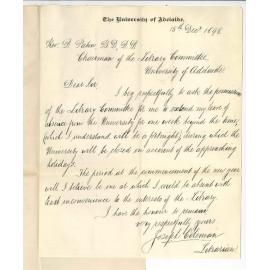 The University of Adelaide,
15th Decr 1898
Rev. D. Paton B.D. D.D.
Chairman of the Library Committee,
University of Adelaide
Dear Sir
I beg respectfully to ask the permission
of the Library Committee for me to extend my leave
of absence from the University for one week beyond the time,
which I understand will be a fortnight, during which the
University will be closed on account of the approaching
holidays.
The period at the commencement of the new year
will I believe be one at which I could be absent with
least inconvenience to the interests of the Library.
I have the honour to remain
very respectfully yours
Joseph Coleman
Librarian